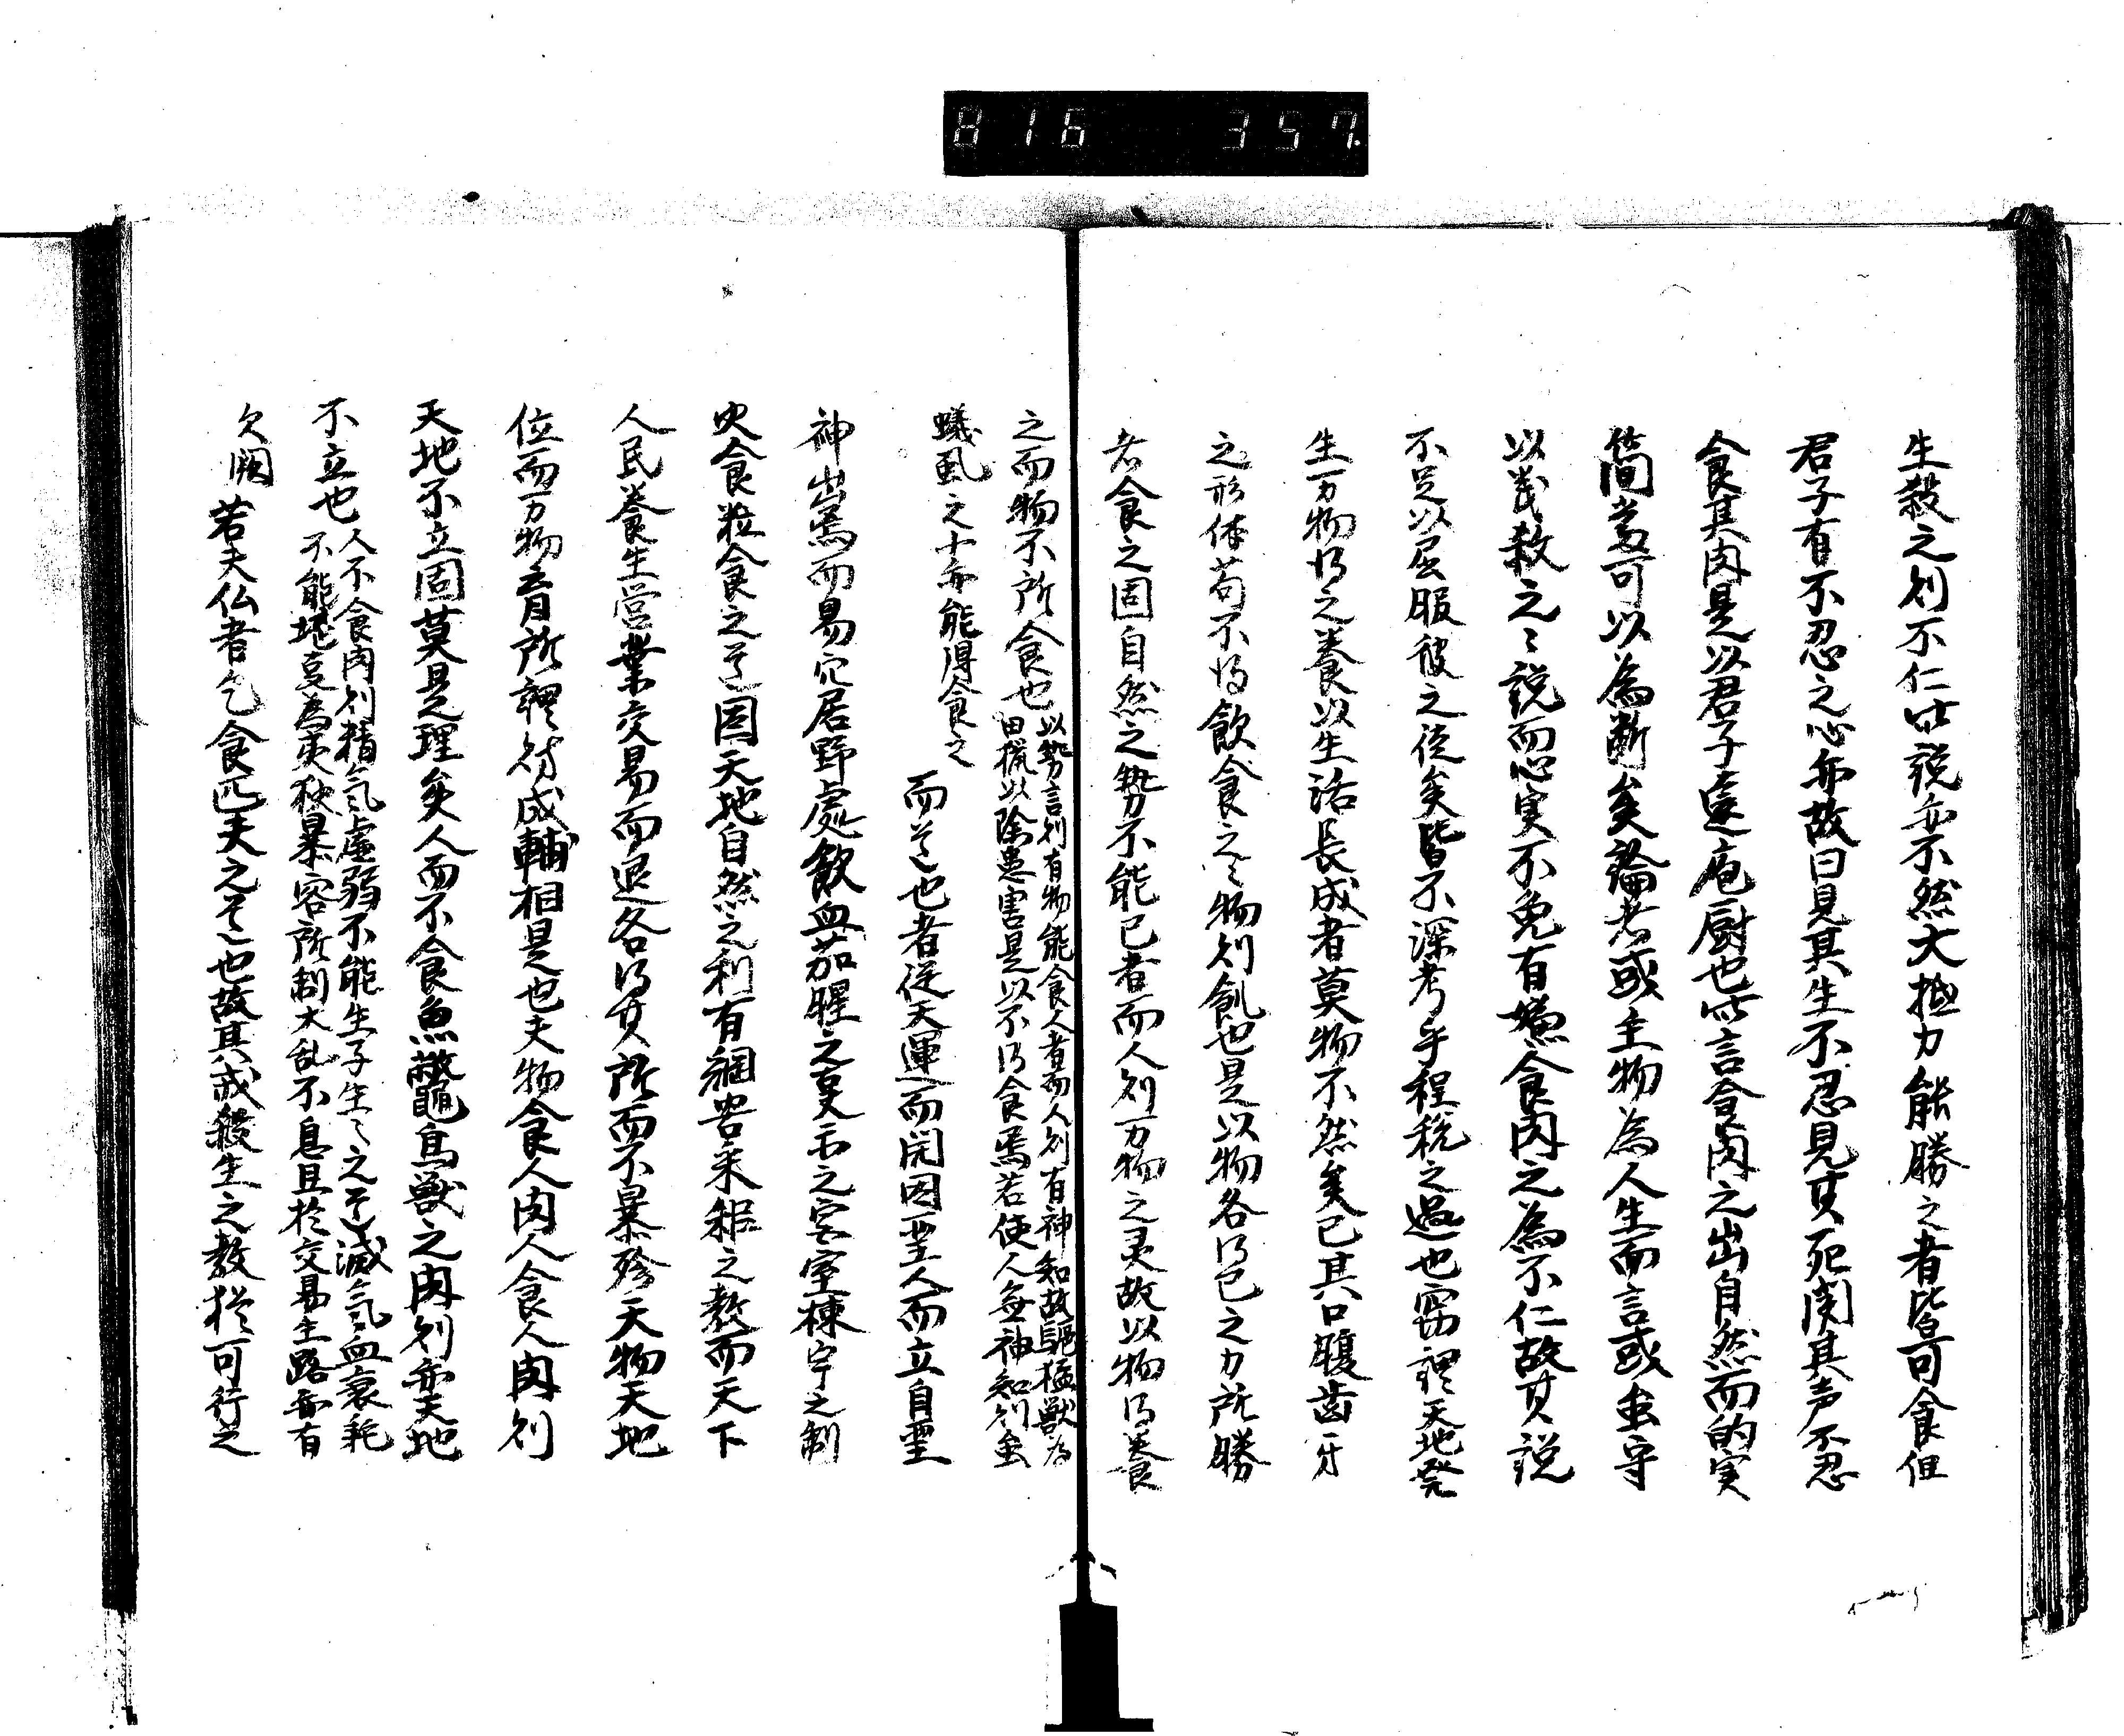 816 357
生殺之則不仁此説亦不然大抵力能勝之者皆可食但
君子有不忍之心耳故曰見其生不忍見其死聞其声不忍
食其肉是以君子遠庖厨也此言食肉之出自然而的実
簡当可以為断矣論者或主物為人生而言或虫字
以幾殺之々説而心実不免有嫌食肉之為不仁故其説
不足以屈服彼之徒矣皆不深考乎程税之過也窃謂天地発
生万物得之養以生活長成者莫物不然矣已其口腹歯牙
之形体苟不得飲食之々物則飢也是以物各以己之力所勝
者食之固自然之勢不能已者而人則万物之灵故以物得養
之而物不所食也
以勢言則有物能食人者而人則有神知故駆猛獣為
田猟以除患害是以不得食焉若使人無神知則虫
蟻虱之小亦能得食之
而道也者従天運而開因聖人而立自聖
神出焉而易穴居野處飲血茹腥之夏示之宮室棟宇之制
火食粒食之道因天地自然之利有網罟耒耜之教而天下
人民養生営業交易而退各得其所而不暴殄天物天地
位而万物育所謂財成輔相是也夫物食人肉人食人肉則
天地不立固莫是理矣人而不食魚鼈鳥獣之肉則亦天地
不立也
人不食肉則精気虚弱不能生子生々之道滅気血衰耗
不能堪夏為夷狄暴容所制大乱不息且於交易主路亦有
欠闕
若夫仏者乞食匹夫之道也故其戒殺生之教猶可行之